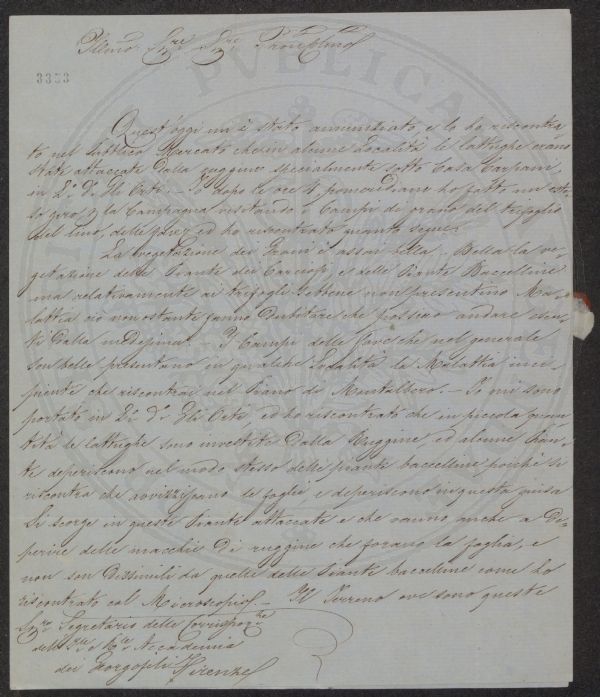 Illmo Sigre Sigre
3353
Quest'oggi mi è stato annunziato, e l'ho riscontra-
to nel pubblico Mercato che in alcune Località le lattughe erano
state attaccate dalla ruggine specialmente sotto Casa Carpani,
in Lo do Gli Orti. Io dopo le ore 4 pomeridiane ho fatto un este-
so giro, la Campagna visitando i Campi di grano del trifoglio
del lino, delle fave, ed ho riscontrato quanto segue.
La vegetazione dei Grani è assai bella. Bella la ve-
getazione delle Piante dei Carciofi, e delle Piante Baccelline
ma relativamente ai trifogli sebbene non presentino Ma-
lattia ciò nonostante fanno dubitare che possino andare esen-
ti dalla medesima. I Campi delle fave che nel generale
son belle presentano in qualche Località la Malattia inci-
piente che riscontrai nel Piano di. Io mi sono
portato in Lo do Gli Orti, ed ho riscontrato che in piccola quan-
tità le lattughe sono investite dalla Ruggine ed alcune Pian-
te deperiscono nel modo stesso delle piante baccelline poichè si
riscontra che avvizziscano le foglie e deperiscono in questa guisa
Si scorge in queste Piante attaccate e che vanno anche a de-
perire delle macchie di ruggine che forano la foglia, e
non son dissimili da quelle delle Piante baccelline come ho
riscontrato col Microscopio. Il Terreno ove sono queste
Sigre Segretario delle Corrispoze
della I. e Rle Accademia
dei Georgofili Firenze